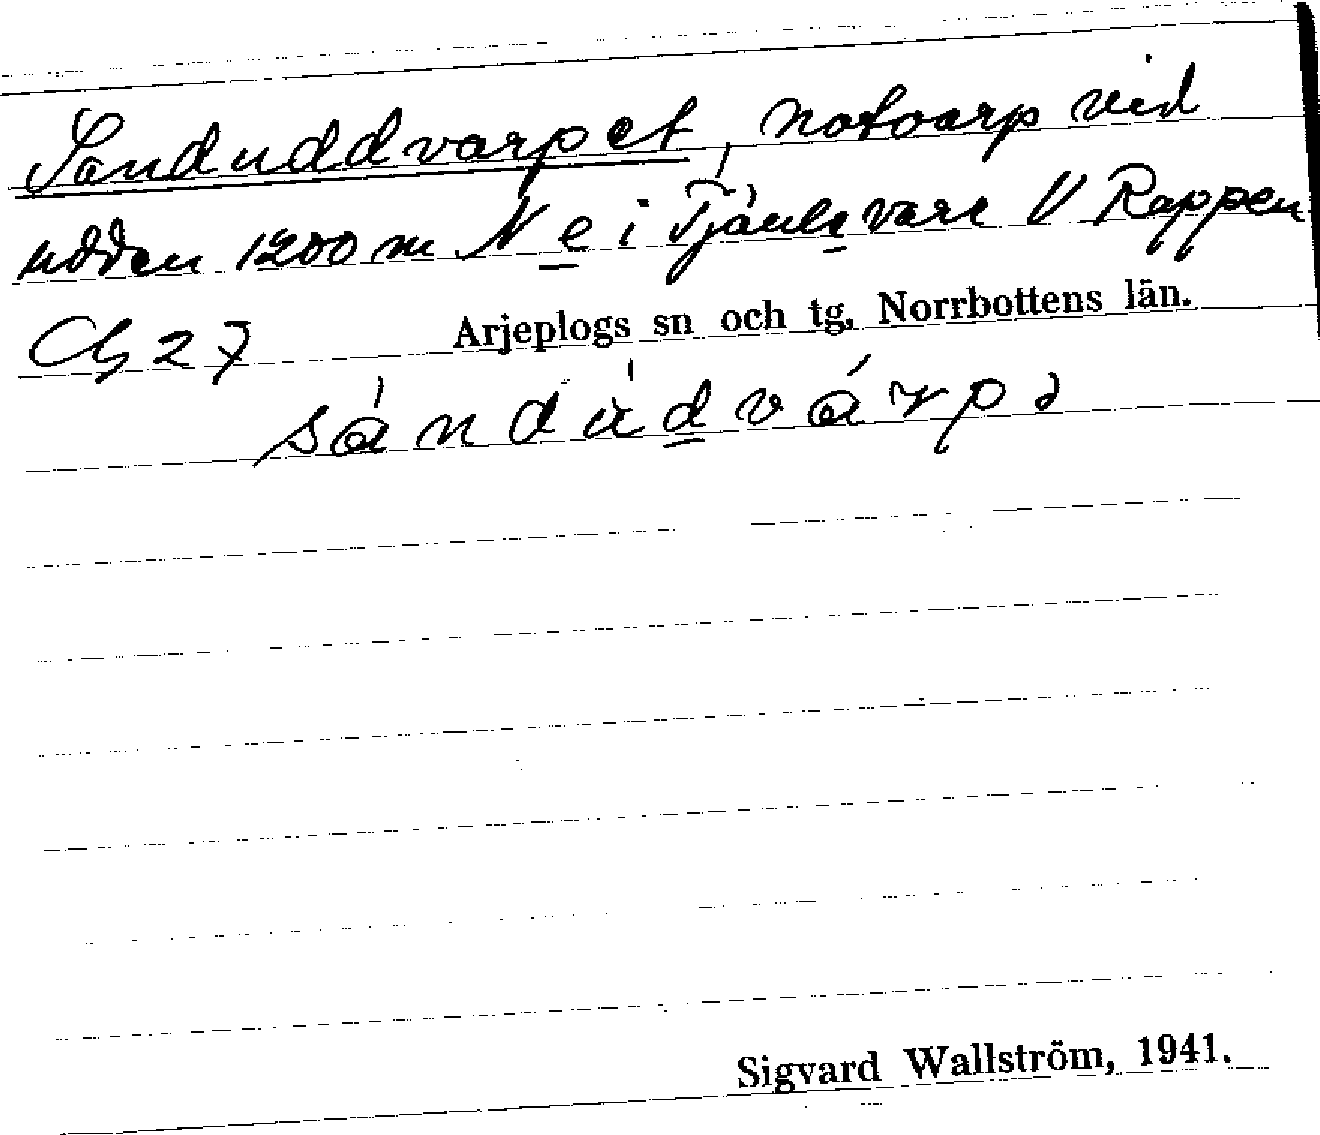 Sanduddvarpet, notvarp vid
udden 1200 m N e i Tjäulevare V Rappen
Cg 27 Arjeplogs sn och tg, Norrbottens län.
sándùdvárpə
Sigvard Wallström, 1941.